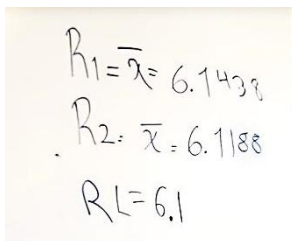 R1 = x̄ = 6.1438
R2 = x̄ = 6.1188
RL = 6.1